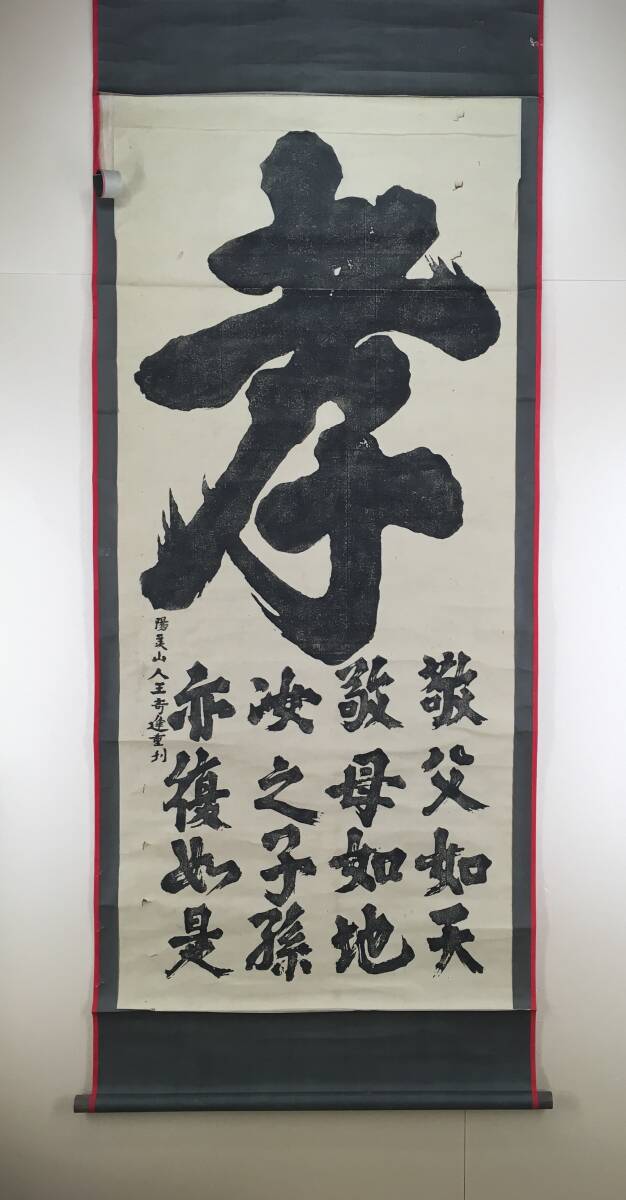 孝
敬父如天
敬母如地
汝之子孫
亦復如是
陽羡山人王奇逢重刊